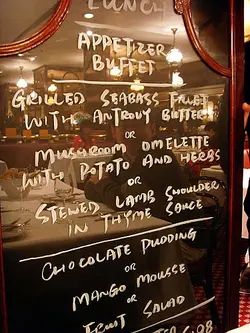 LUNCH
APPETIZER
BUFFET
GRILLED SEABASS FILLET
WITH ANTHONY BUTTER
OR
MUSHROOM OMELETTE
WITH POTATO AND HERBS
OR
STEWED LAMB SHOULDER
IN THYME SAUCE
CHOCOLATE PUDDING
OR
MANGO MOUSSE
OR
FRUIT SALAD